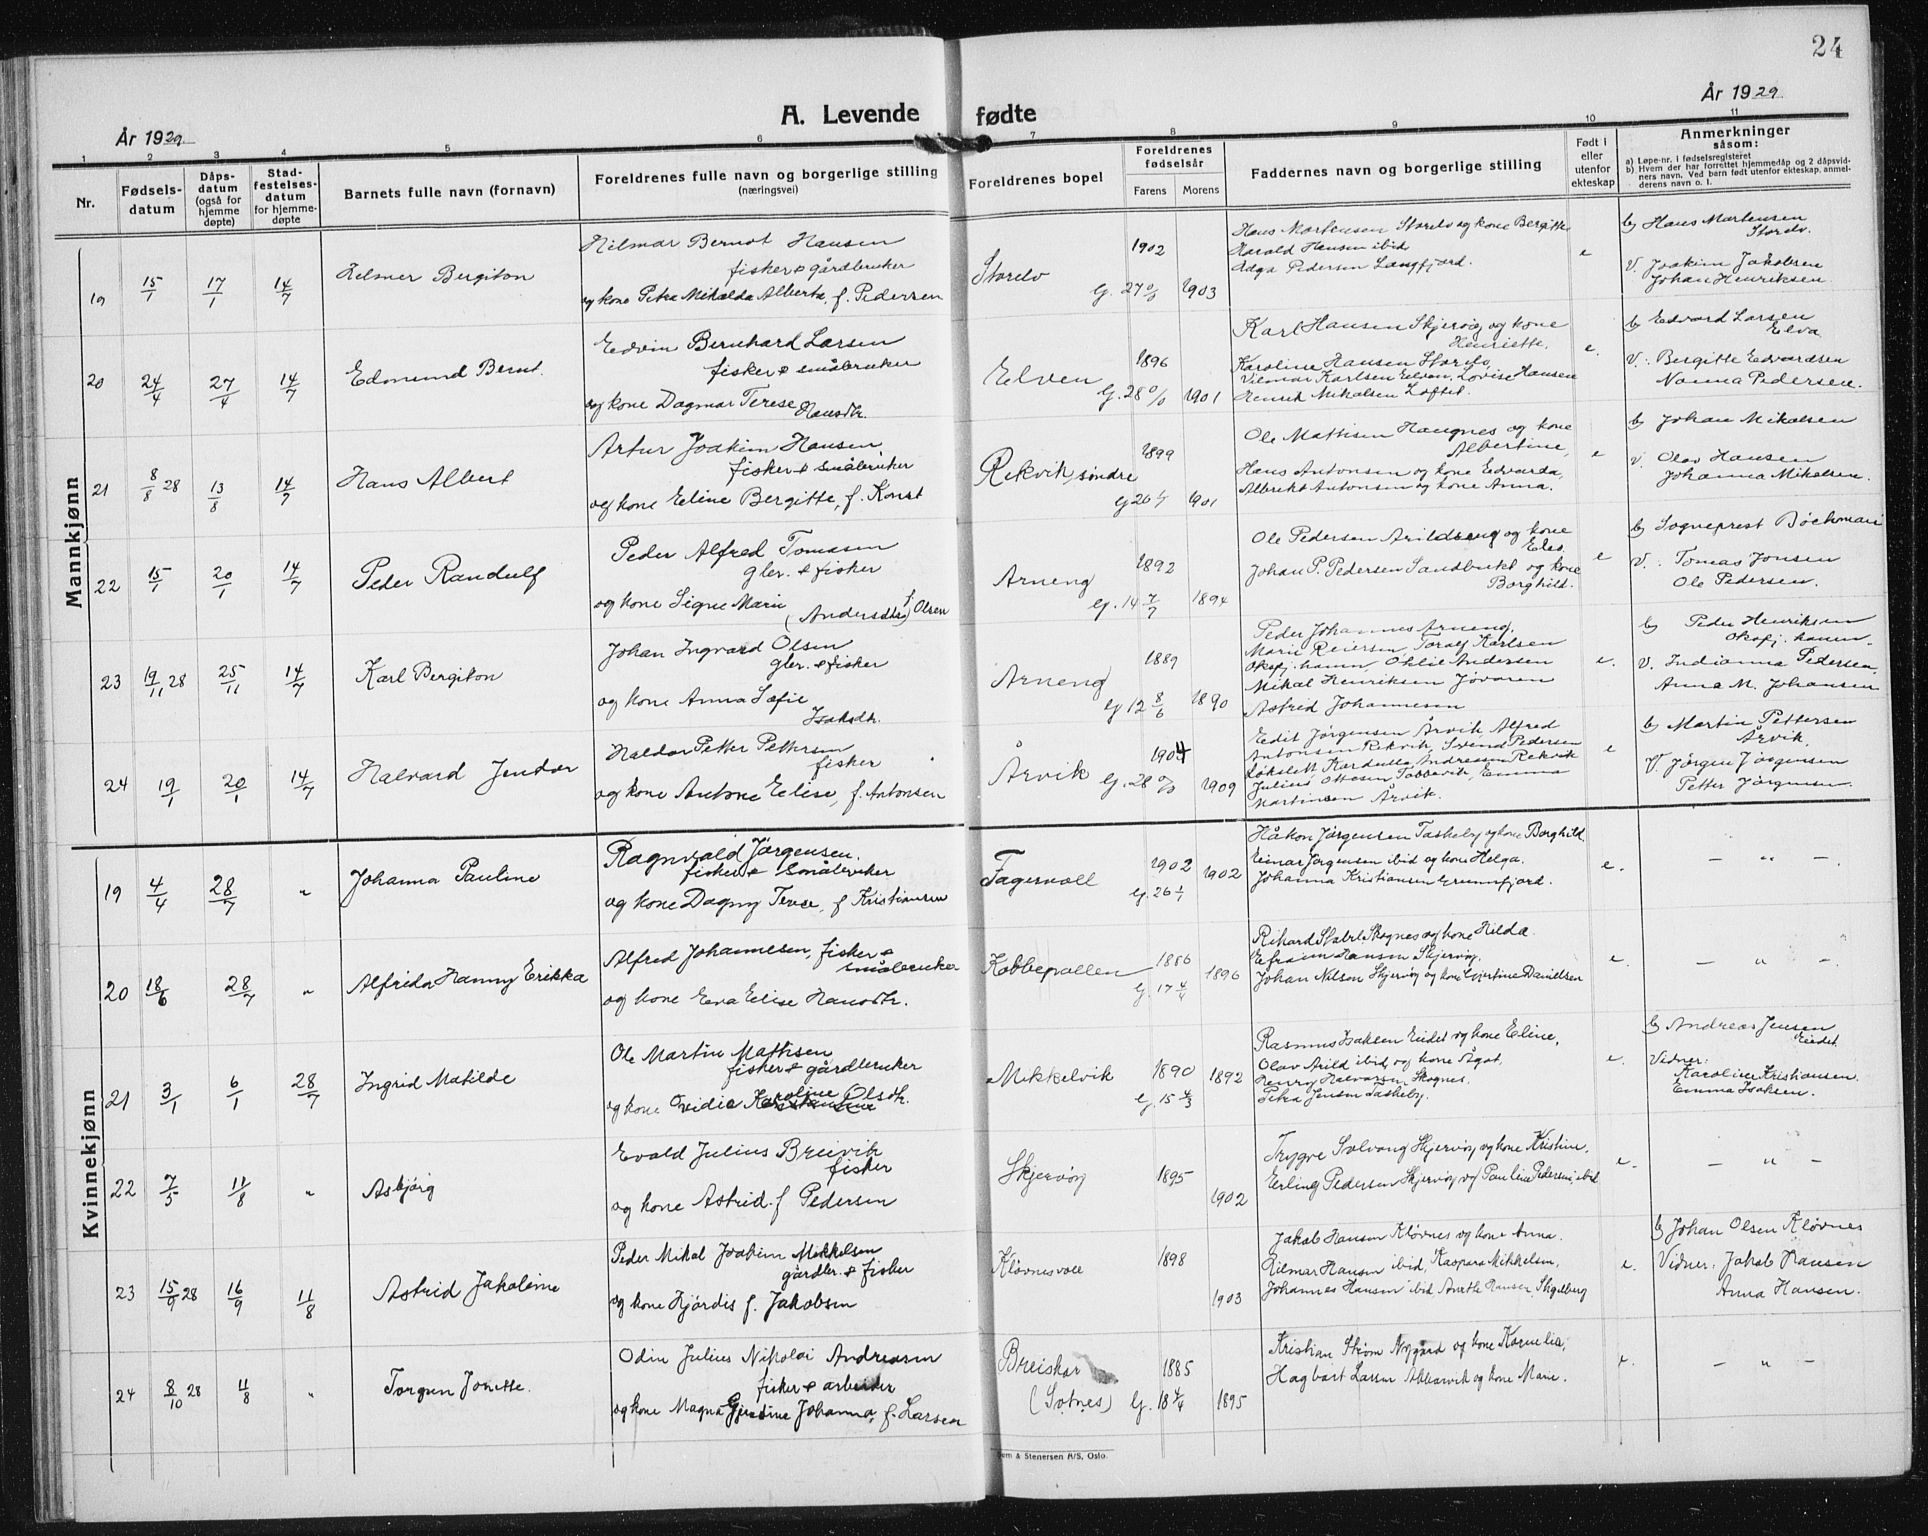 24
År 1929
A. Levende fødte
År 1929
1 2 3 4 5 6 7 8 9 10 11
Nr.
Fødselsdatum
Dåpsdatum (også for hjemmedøpte)
Stadfestelsesdatum for hjemmedøpte
Barnets fulle navn (fornavn)
Foreldrenes fulle navn og borgerlige stilling
(næringsvei)
Foreldrenes bopel
Foreldrenes fødselsår
Farens Morens
Faddernes navn og borgerlige stilling
Født i eller utenfor ekteskap
Anmerkninger såsom:
a) Løpe-nr. i fødselsregisteret
b) Hvem der har forrettet hjemmedåp og 2 dåpsvidners navn. Ved barn født utenfor ekteskap, anmelderens navn o. l.
Mannkjønn
19 15/1 17/1 14/7 Helmer Bergiton
Hilmar Bernot Hansen
fisker & gårdbruker
og kone Petra Mikalda Alberta, f. Pedersen
Storelv
1902
G. 27 1903
Hans Mortensen Storelv og kone Bergitte
Harald Hansen ibid
Adga Pedersen Langfjord.
e
b, Hans Martensen
Storelv.
V. Joakim Jakobsen
Johan Henriksen.
20 24/4 27/4 14/7 Edmund Bernt.
Edvin Bernhard Larsen
fisker & småbruker
og kone Dagmar Terese Hansdtr.
Elven
1896
G. 28 1901
Karl Hansen Skjervøy og kone
Henriette.
Karoline Hansen Storelv,
Vilmar Karlsen Elven, Lovise Hansen
Henrik Mikalsen Loftet.
e.
b, Edvard Larsen
Elva
V. Bergitte Edvardsen
Nanna Pedersen.
21 8/8 28 13/8 14/7 Hans Albert
Artur Joakim Hansen,
fisker & småbruker
og kone Eline Bergitte, f. Konst
Rekvik, søndre
1899
G 26 1901
Ole Mattisen Haugnes og kone
Albertine,
Hans Antonsen og kone Edvarda,
Albrikt Antonsen og kone Anna.
e
b, Johan Mikalsen
V. Olav Hansen
Johanna Mikalsen.
22 15/1 20/1 14/7 Peder Randulf
Peder Alfred Tomasen
gbr. & fisker
og kone Signe Marie
(Andersdtr) f. Olsen
Arneng
1892
G. 14 7/7 1894
Ole Pedersen Arildseng og kone
Eles.
Johan P. Pedersen Sandbukt og kone
Borghild.
e
b, Sogneprest Böckman
V. Tomas Jonsen
Ole Pedersen.
23 19/11 28 25/11 14/7 Karl Bergiton
Johan Ingvard Olsen
gbr. & fisker
og kone Anna Sofie
Isaksdtr.
Arneng
1889
G 12 8/6 1890
Peder Johannes Arneng,
Marie Reiersen, Toralf Karlsen
Oksfj. hamn, Ohlie Andersen
Mikal Henriksen Jøvaren
Astrid Johannesen
e.
b, Peder Henriksen
Oksfj. hamn
V. Indianna Pedersen,
Anna M. Johansen
24 19/1 20/1 14/7 Halvard Jendor
Haldor Petter Pettersen
fisker
og kone Antone Elise, f. Antonsen
Årvik
1904
G. 28 1909
Edit Jørgensen Årvik, Alfred
Antonsen Rekvik, Svend Pedersen
Løkslett, Kardulla Andreassen Rekvik
Julius Ottesen Tobbevik, Emma
Martinsen Årvik.
e
b, Martin Pettersen
Årvik.
V. Jörgen Jörgensen
Petter Jörgensen.
Kvinnekjønn
19 4/4 28/7 " Johanna Pauline
Ragnvald Jörgensen.
fisker & småbruker
og kone Dagny Terese, f. Kristiansen
Fagervoll
1902 1902
G. 26
Håkon Jørgensen Taskeby og kone Borghild.
Einar Jørgensen ibid og kone Helga.
Johanna Kristiansen Grunnfjord.
e.
— " —.
20 18/6 28/7 " Alfrida Hanny Erikka
Alfred Johannesen, fisker &
småbruker
og kone Eva Elise Hansdtr.
Kobbepollen
1886 1896
G. 17 4/4
Rikard Stabel Skognes og kone Hilda.
Efraim Hansen Skjervøy.
Johan Nilsen Skjervøy og kone Gjertine Danielsen
e.
— " —.
21 3/1 6/1 28/7 Ingrid Matilde
Ole Martin Mathisen
fisker & gårdbruker
og kone Ovidie Karoline Olsdtr.
Mikkelvik
1890 1892
G. 15 4/3
Rasmus Isaksen Eidet og kone Eline,
Olav Arild ibid, og kone Ågot,
Henry Halvorsen Skognes.
Petra Jensen Taskeby.
e.
b, Andreas Jensen
Eidet
Vidner:
Karoline Kristiansen.
Emma Isaksen.
22 7/5 11/8 " Asbjörg
Evald Julius Breivik
fisker
og kone Astrid f. Pedersen
Skjervöy
1895
1902
Trygve Solvang Skjervöy og kone Kristine.
Erling Pedersen Skjervöy og Pauline Pedersen ibid
e.
— " —
23 15/9 28 16/9 11/8 Astrid Jakobine
Peder Mikal Joakim Mikkelsen
gårdbr. & fisker
og kone Hjördis f. Jakobsen
Kløvnesvoll
1898
1903
Jakob Hansen Kløvnes og kone Anna.
Hilmar Hansen ibid, Kaspara Mikkelsen.
Johannes Hansen ibid Anette Hansen Skogberg
e.
b, Johan Olsen Kløvnes
Vidner: Jakob Hansen
Anna Hansen.
24 8/10 28 11/8 " Torgun Jonette.
Odin Julius Nikolai Andreasen
fisker & arbeider
og kone Magna Gjertine Johanna, f. Larsen
Breiskar
(Sotnes)
1885
G. 18 4/4 1895
Kristian Strøm Nygård og kone Kornelia,
Hagbart Larsen Akkarvik og kone Marie.
e.
— " —
em & Stenersen A/S, Oslo.